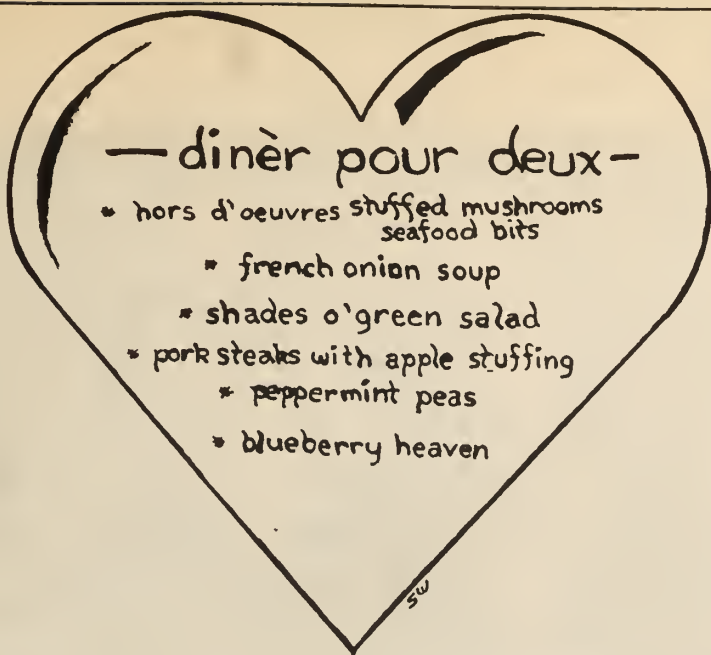 — dinèr pour deux —
* hors d'oeuvres stuffed mushrooms
seafood bits
* french onion soup
* shades o'green salad
* pork steaks with apple stuffing
* peppermint peas
* blueberry heaven
SW